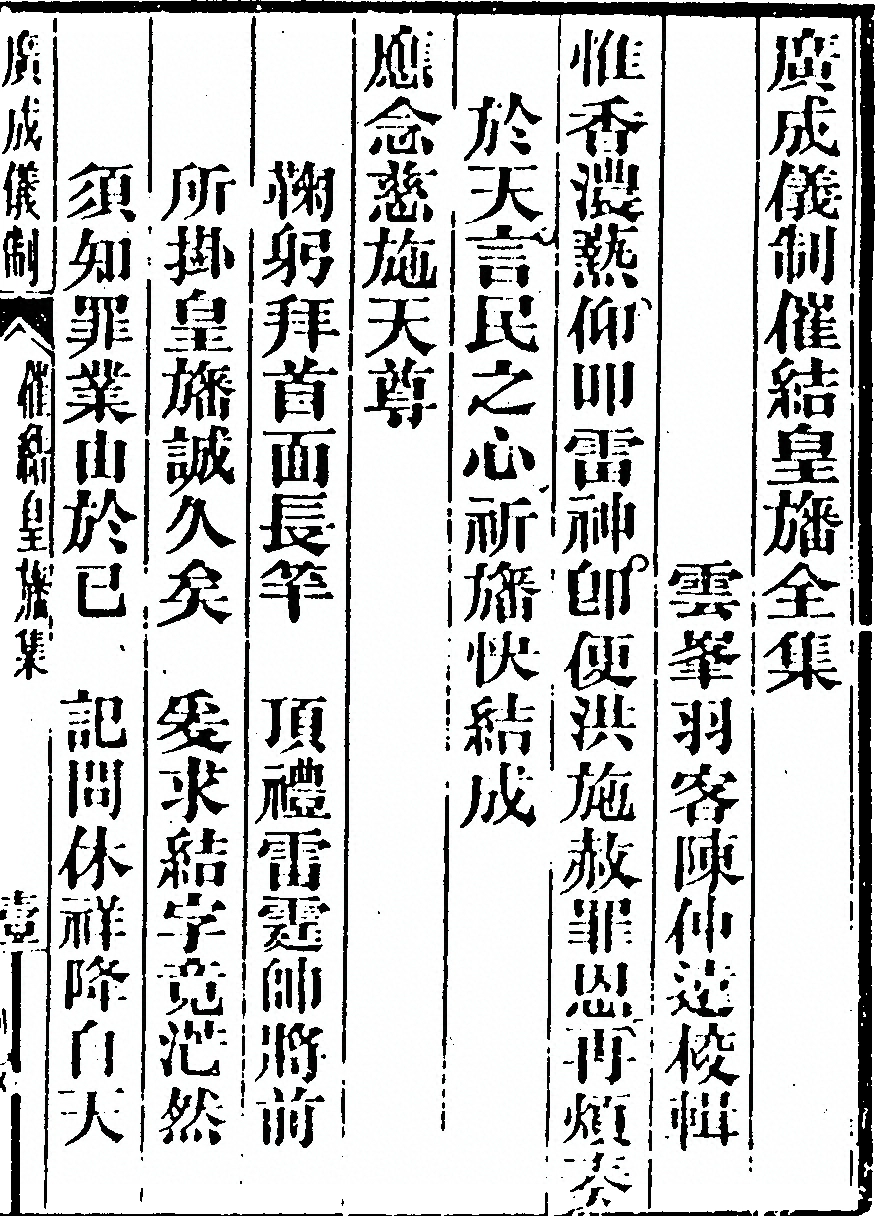 廣成儀制催結皇旛全集
雲峯羽客陳仲遠校輯
惟香濃爇仰叩雷神卽便洪施赦罪恩再煩奏
於天言民之心祈旛快結成
應念慈施天尊
鞠躬拜首面長竿　頂禮雷霆帥將前
所掛皇旛誠久矣　爰求結字竟茫然
須知罪業由於已　記問休祥降自天
廣成儀制　催結皇旛集　壹